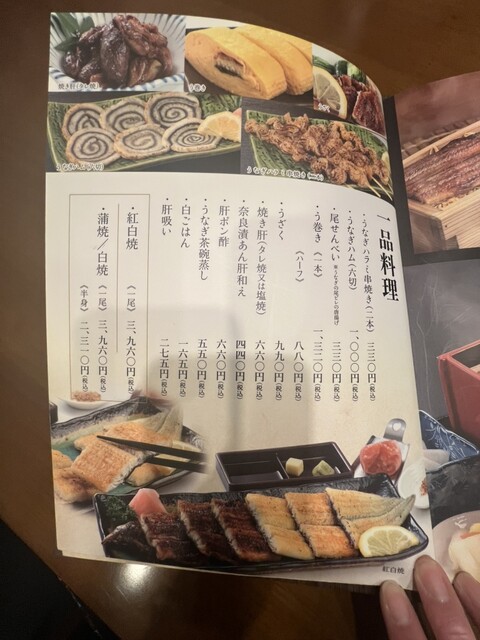 焼き肝(タレ焼)
う巻き
うなぎハム(六切)
うなぎハラミ串焼き(二本)
一品料理
・うなぎハラミ串焼き(二本) 三三〇円(税込)
・うなぎハム(六切) 一、〇〇〇円(税込)
・尾せんべい ※うなぎの尾ビレの唐揚げ 三三〇円(税込)
・う巻き(一本) 一、三二〇円(税込)
(ハーフ) 八八〇円(税込)
・うざく 九九〇円(税込)
・焼き肝(タレ焼又は塩焼) 六六〇円(税込)
・奈良漬あん肝和え 四四〇円(税込)
・肝ポン酢 六六〇円(税込)
・うなぎ茶碗蒸し 五五〇円(税込)
・白ごはん 一六五円(税込)
・肝吸い 二七五円(税込)
・紅白焼 (一尾) 三、九六〇円(税込)
・蒲焼/白焼 (一尾) 三、九六〇円(税込)
(半身) 二、三一〇円(税込)
紅白焼